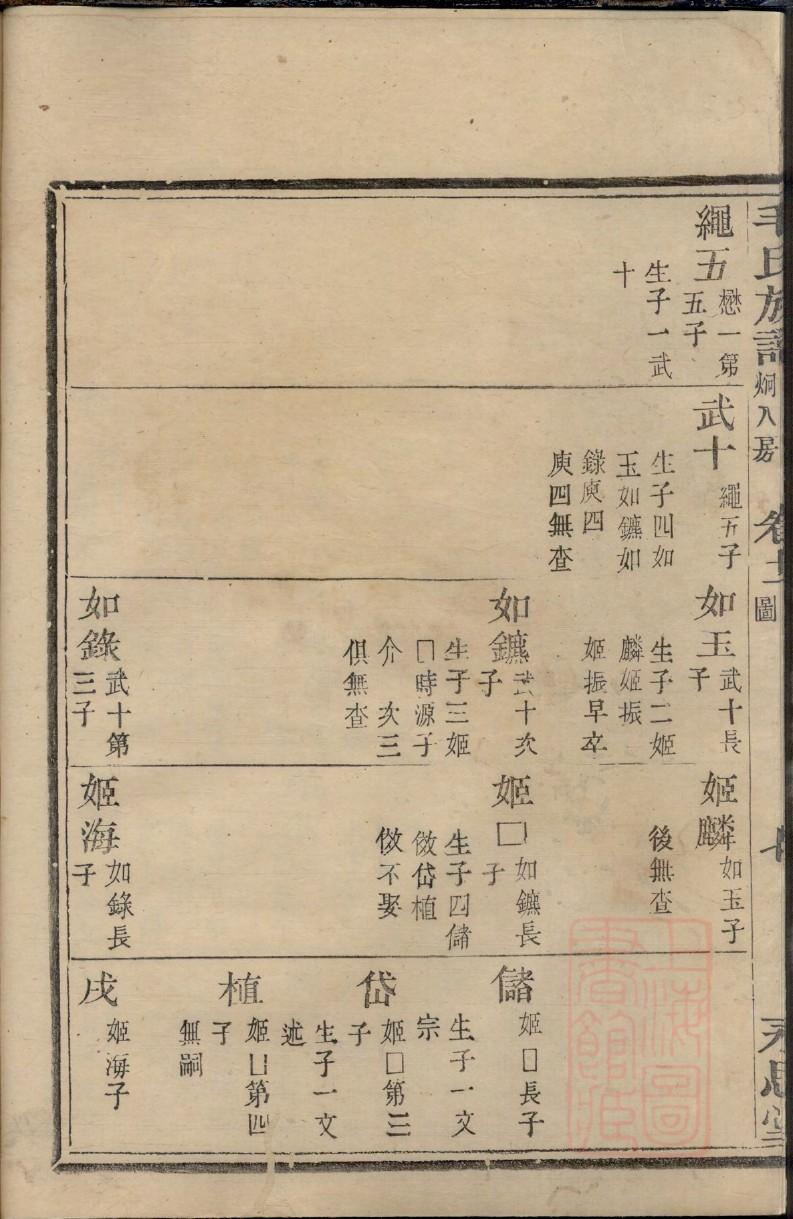 毛氏族譜 烱八房 卷十二 圖 永思堂
繩五 懋一第
五子
生子一武
十
武十 繩五子
生子四如
玉如鑣如
錄庾四
庾四無查
如玉 武十長
子
生子二姬
麟姬振
姬振早卒
如鑣 武十次
子
生子三姬
□時源子
介 次三
俱無查
如錄 武十第
三子
姬麟 如玉子
後無查
姬□ 如鑣長
子
生子四儲
傚岱植
傚不娶
姬海 如錄長
子
儲 姬□長子
生子一文
宗
岱 姬□第三
子
生子一文
述
植 姬□第四
子
無嗣
戌 姬海子
上海圖書館藏